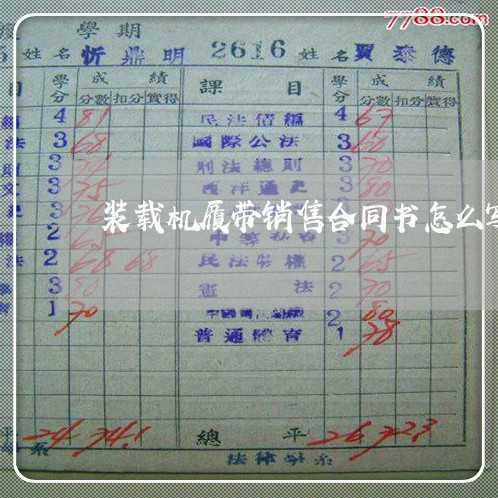 7788.com
學期
姓名 忻鼎明 2616 姓名 賈泰德
目 學分 成績 分數 扣分 實得 課目 學分 成績 分數 扣分 實得
4 81 民法債編 4 67
法 3 68 國際公法 3 60
3 刑法總則 3 70
3 75 西洋通史 3 80
装载机履带销售合同书怎么写
2 3 70
法 2 68 68 民法物權 2 65
3 80 憲法 2 70
1 70 2 80
普通體育 1 78
平 24 74.1 總平 26 72.3
系 法律學系